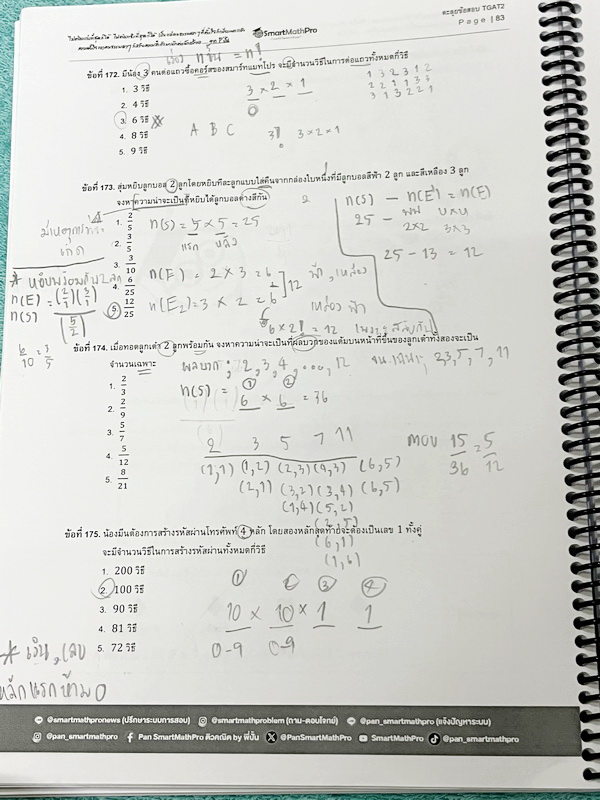 SmartMathPro
ตะลุยข้อสอบ TGAT2
Page | 83
ข้อที่ 172. มีน้อง 3 คนต่อแถวซื้อคอร์สของสมาร์ทแมทโปร จะมีจำนวนวิธีในการต่อแถวทั้งหมดกี่วิธี
1. 3 วิธี
3 × 2 × 1
2. 4 วิธี
3. 6 วิธี
4. 8 วิธี
A B C
3! 3×2×1
5. 9 วิธี
ข้อที่ 173. สุ่มหยิบลูกบอล 2 ลูกโดยหยิบทีละลูกแบบใส่คืนจากกล่องใบหนึ่งที่มีลูกบอลสีฟ้า 2 ลูก และสีเหลือง 3 ลูก
จงหาความน่าจะเป็นที่หยิบได้ลูกบอลต่างสีกัน
n(S) - n(E') = n(E)
1. 2/5
n(S) = 5 × 5 = 25
แรก
25 -
2×2 3×3
2. 3/5
25 - 13 = 12
3. 3/10
n(E) = 2 × 3 = 6
12
ฟ้า, เหลือง
4. 6/25
n(E2) = 3 × 2 = 6
เหลือง ฟ้า
5. 12/25
6 × 2! = 12
n(E) =
n(S)
6/10 = 3/5
ข้อที่ 174. เมื่อทอดลูกเต๋า 2 ลูกพร้อมกัน จงหาความน่าจะเป็นที่ผลบวกของแต้มบนหน้าที่ขึ้นของลูกเต๋าทั้งสองจะเป็น
จำนวนเฉพาะ
ผลบวก ; 2, 3, 4, ..., 12
1. 2/3
n(S) = 6 × 6 = 36
2. 2/9
3. 5/7
2 3 5 7 11
4. 5/12
(1,1) (1,2) (2,3) (4,3) (6,5)
ตอบ 15/36 = 5/12
5. 8/21
(2,1) (3,2) (3,4) (6,5)
(1,4) (5,2)
(6,1)
(1,6)
ข้อที่ 175. น้องมีนต้องการสร้างรหัสผ่านโทรศัพท์ 4 หลัก โดยสองหลักสุดท้ายจะต้องเป็นเลข 1 ทั้งคู่
จะมีจำนวนวิธีในการสร้างรหัสผ่านทั้งหมดกี่วิธี
1. 200 วิธี
2. 100 วิธี
3. 90 วิธี
10 × 10 × 1 1
4. 81 วิธี
5. 72 วิธี
0-9 0-9
หลักแรกห้าม 0
@smartmathpronews (ปรึกษาระบบการสอบ) @smartmathproblem (ถาม-ตอบโจทย์) @pan_smartmathpro (แจ้งปัญหาระบบ)
@pan_smartmathpro Pan SmartMathPro ติวคณิต by พี่ปั้น @PanSmartMathPro SmartMathPro @pan_smartmathpro